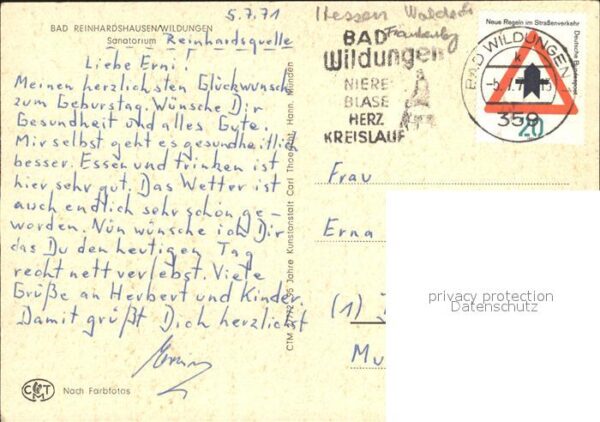 5.7.71
BAD REINHARDSHAUSEN/WILDUNGEN
Sanatorium Reinhardsquelle
Liebe Erni!
Meinen herzlichsten Glückwunsch
zum Geburstag. Wünsche Dir
Gesundheit und alles Gute.
Mir selbst geht es gesundheitlich
besser. Essen und trinken ist
hier sehr gut. Das Wetter ist
auch endlich sehr schön ge-
worden. Nun wünsche ich Dir
das Du den heutigen Tag
recht nett verlebst. Viele
Grüße an Herbert und Kinder.
Damit grüßt Dich herzlichst
Erwin
CMT
Nach Farbfotos
75 Jahre Kunstanstalt Carl Thoericht, Hann. Münden
Hessen Waldeck
Frankenberg
BAD
Wildungen
NIERE
BLASE
HERZ
KREISLAUF
Neue Regeln im Straßenverkehr
Deutsche Bundespost
20
BAD WILDUNGEN
359
Frau
Erna
(1)
privacy protection
Datenschutz